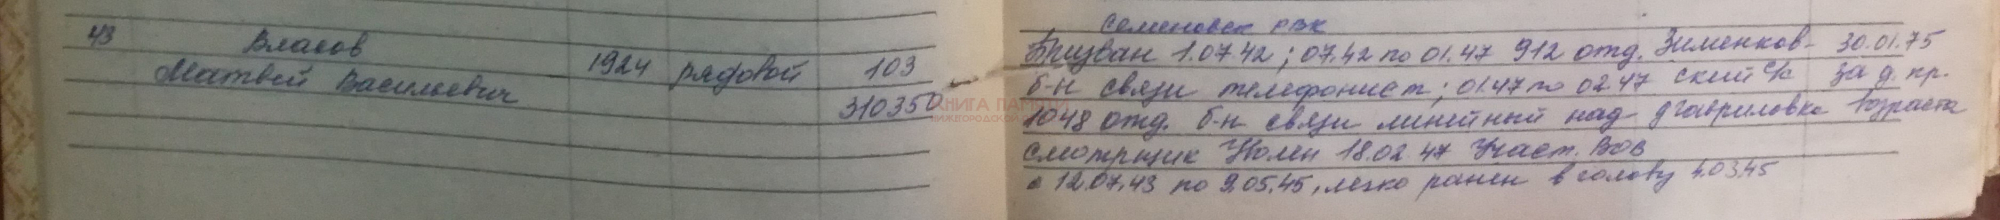 43 Власов 1924 рядовой 103
Матвей Васильевич 310350
КНИГА ПАМЯТИ
НИЖЕГОРОДСКОЙ
Семеновск РВК
Призван 1.07.42; 07.42 по 01.47 912 отд. Зименков- 30.01.75
б-н связи телефонист; 01.47 по 02.47 ский с/с за д. пр.
1048 отд. б-н связи линейный над д Гавриловка возраста
смотрщик Уволен 18.02.47 Участ. ВОВ
с 12.07.43 по 9.05.45, легко ранен в голову 4.03.45